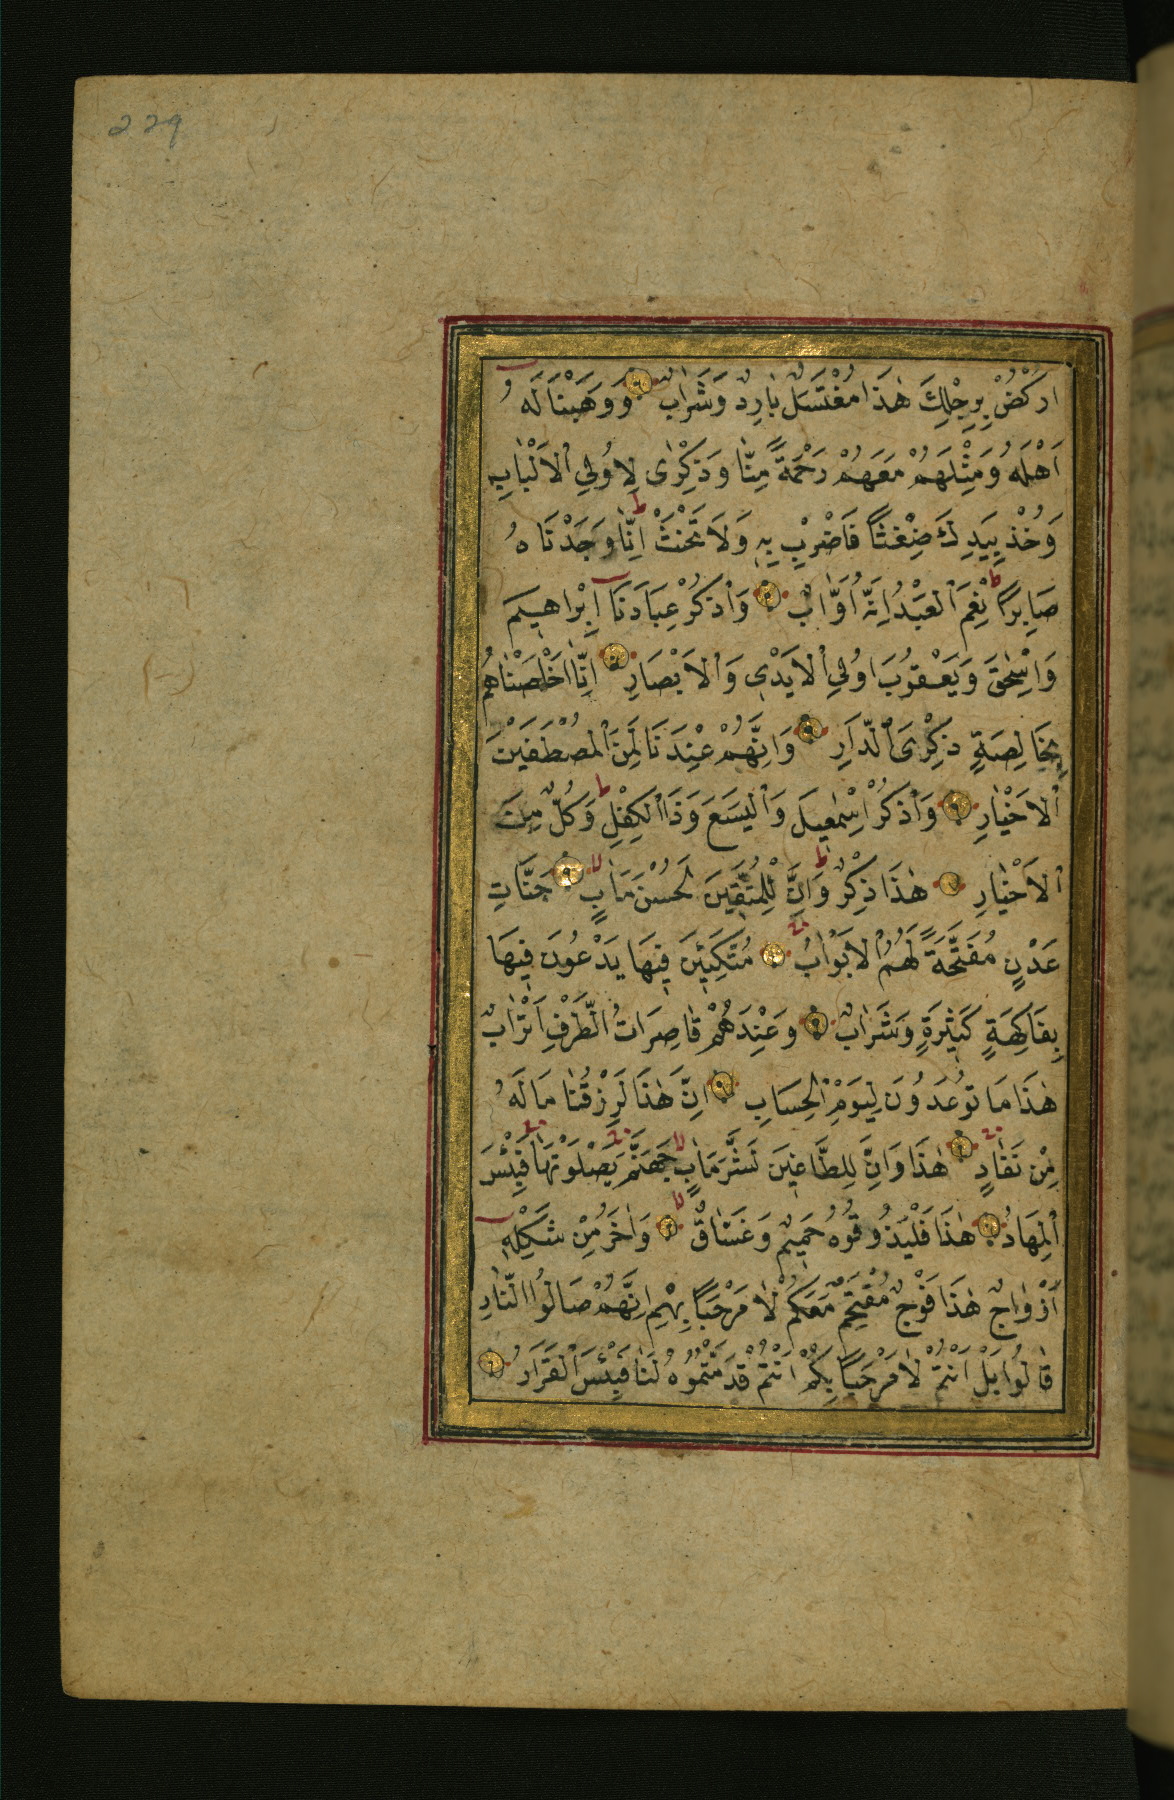 229
اُرْكُضْ بِرِجْلِكَ هٰذَا مُغْتَسَلٌ بَارِدٌ وَشَرَابٌ وَوَهَبْنَا لَهُ
اَهْلَهُ وَمِثْلَهُمْ مَعَهُمْ رَحْمَةً مِنَّا وَذِكْرٰى لِاُولِي الْاَلْبَابِ
وَخُذْ بِيَدِكَ ضِغْثًا فَاضْرِبْ بِهِ وَلَا تَحْنَثْ اِنَّا وَجَدْنَاهُ
صَابِرًا نِعْمَ الْعَبْدُ اِنَّهُ اَوَّابٌ وَاذْكُرْ عِبَادَنَا اِبْرٰاهِيمَ
وَاِسْحٰقَ وَيَعْقُوبَ اُولِي الْاَيْدِي وَالْاَبْصَارِ اِنَّا اَخْلَصْنَاهُمْ
بِخَالِصَةٍ ذِكْرَى الدَّارِ وَاِنَّهُمْ عِنْدَنَا لَمِنَ الْمُصْطَفَيْنَ
الْاَخْيَارِ وَاذْكُرْ اِسْمٰعِيلَ وَالْيَسَعَ وَذَا الْكِفْلِ وَكُلٌّ مِنَ
الْاَخْيَارِ هٰذَا ذِكْرٌ وَاِنَّ لِلْمُتَّقِينَ لَحُسْنَ مَاٰبٍ جَنَّاتِ
عَدْنٍ مُفَتَّحَةً لَهُمُ الْاَبْوَابُ مُتَّكِئِينَ فِيهَا يَدْعُونَ فِيهَا
بِفَاكِهَةٍ كَثِيرَةٍ وَشَرَابٍ وَعِنْدَهُمْ قَاصِرَاتُ الطَّرْفِ اَتْرَابٌ
هٰذَا مَا تُوعَدُونَ لِيَوْمِ الْحِسَابِ اِنَّ هٰذَا لَرِزْقُنَا مَا لَهُ
مِنْ نَفَادٍ هٰذَا وَاِنَّ لِلطَّاغِينَ لَشَرَّ مَاٰبٍ جَهَنَّمَ يَصْلَوْنَهَا فَبِئْسَ
الْمِهَادُ هٰذَا فَلْيَذُوقُوهُ حَمِيمٌ وَغَسَّاقٌ وَاٰخَرُ مِنْ شَكْلِهِ
اَزْوَاجٌ هٰذَا فَوْجٌ مُقْتَحِمٌ مَعَكُمْ لَا مَرْحَبًا بِهِمْ اِنَّهُمْ صَالُوا النَّارِ
قَالُوا بَلْ اَنْتُمْ لَا مَرْحَبًا بِكُمْ اَنْتُمْ قَدَّمْتُمُوهُ لَنَا فَبِئْسَ الْقَرَارُ